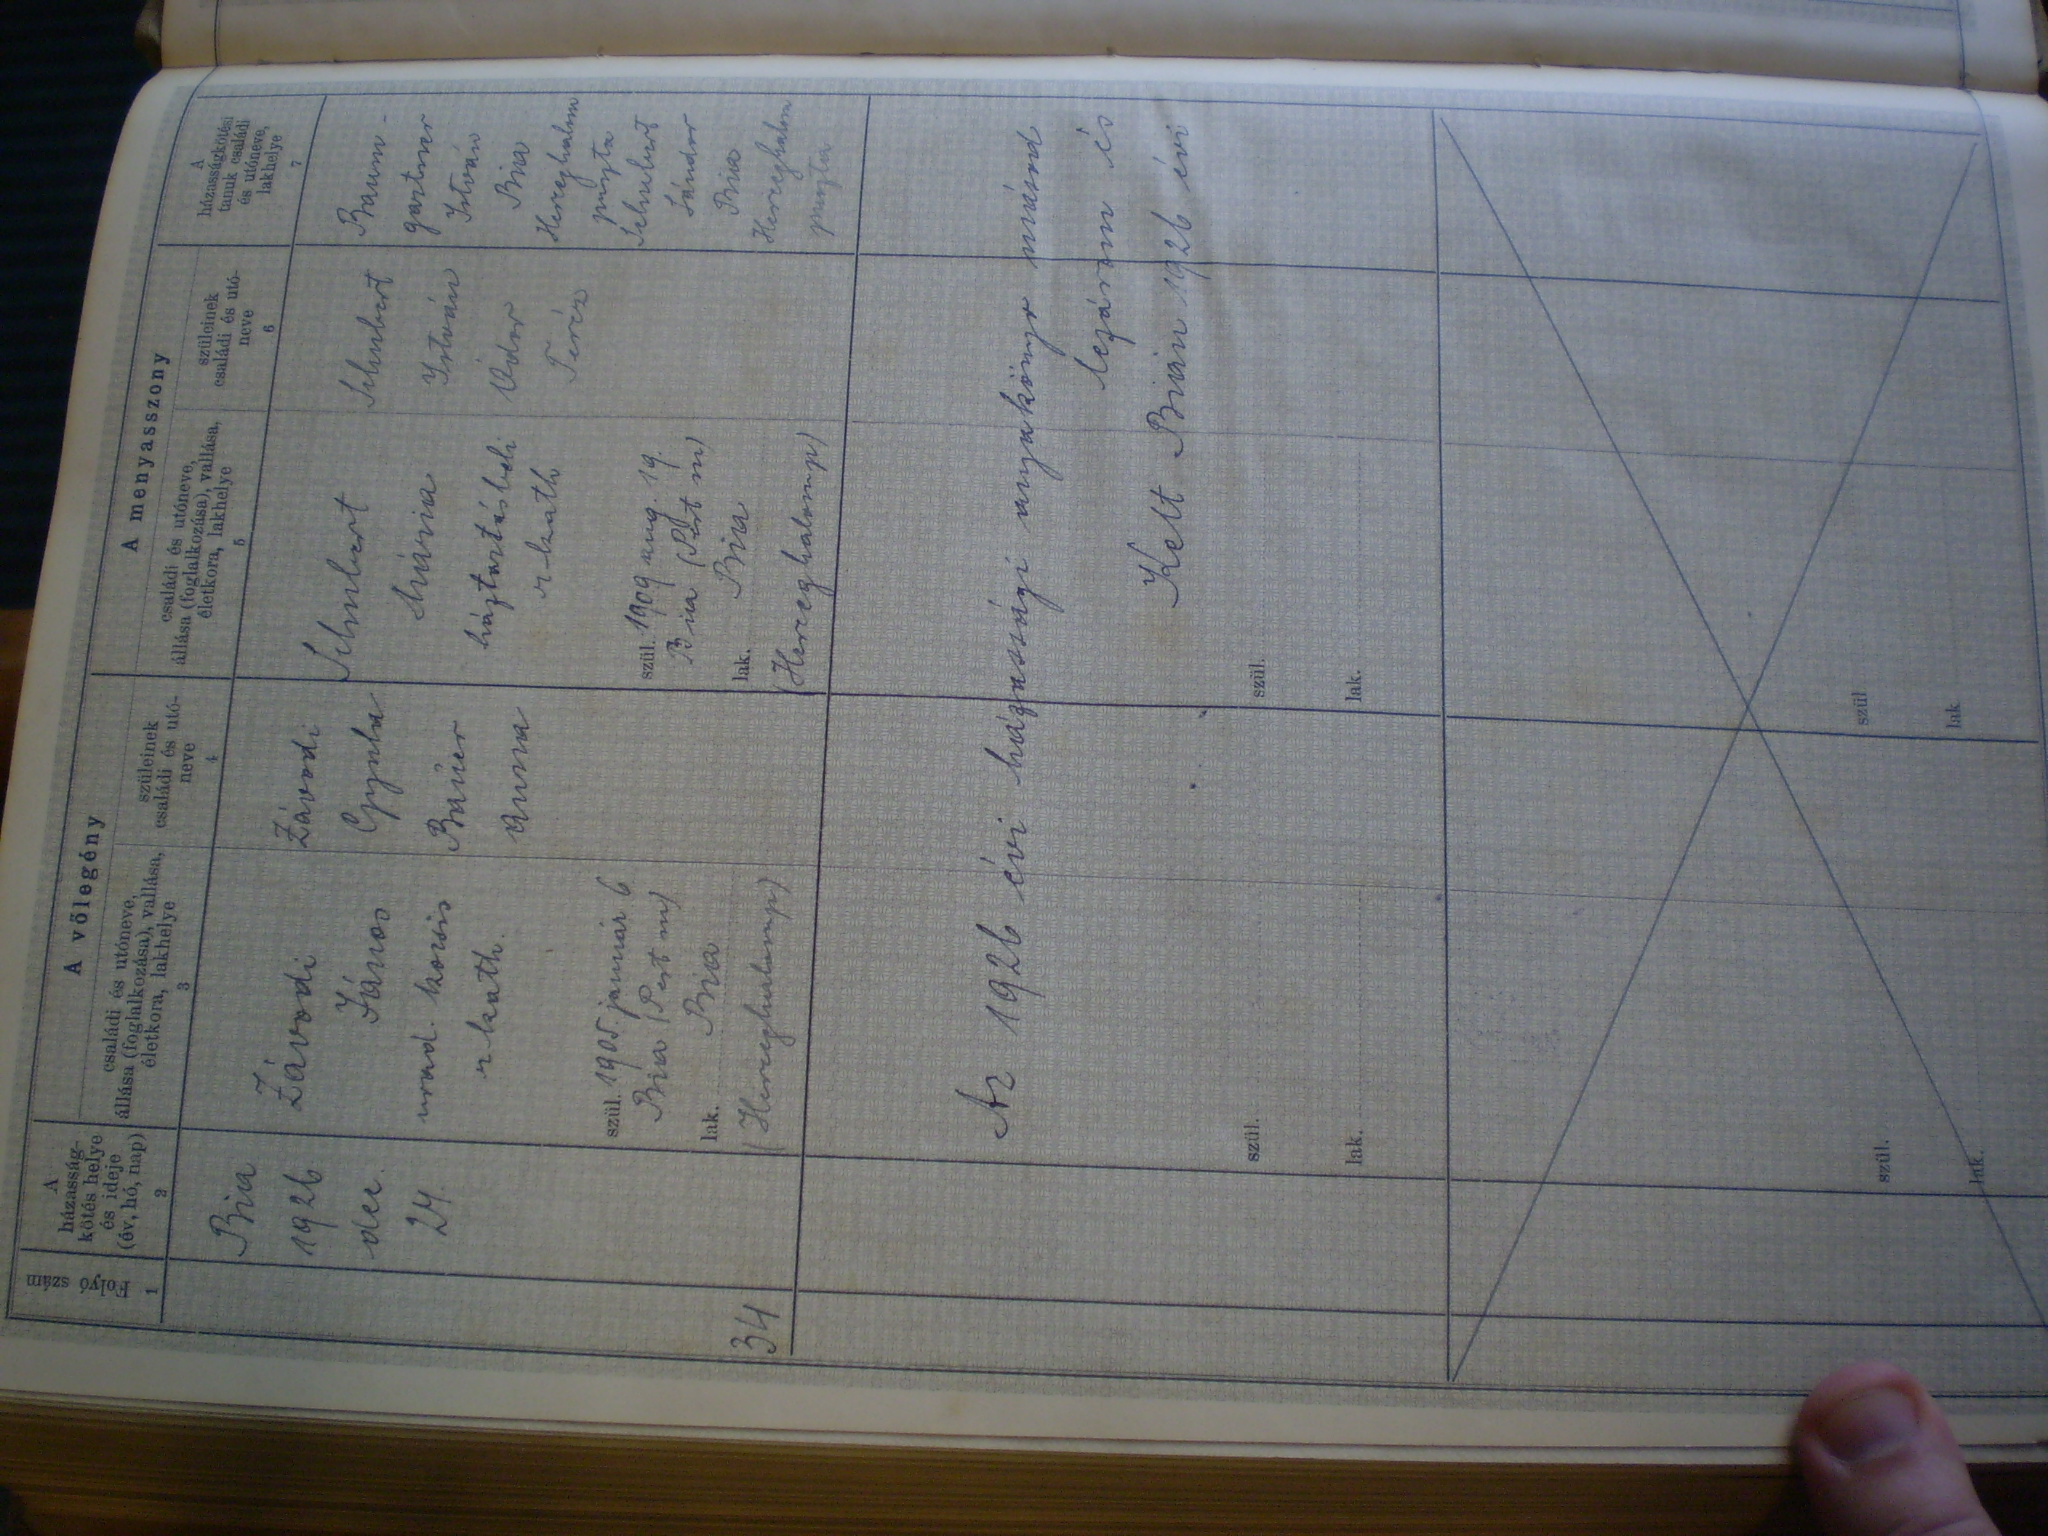 A vőlegény
A menyasszony
Folyó szám
1
A
házasság-
kötés helye
és ideje
(év, hó, nap)
2
családi és utóneve,
állása (foglalkozása), vallása,
életkora, lakhelye
3
szüleinek
családi és utó-
neve
4
családi és utóneve,
állása (foglalkozása), vallása,
életkora, lakhelye
5
szüleinek
családi és utó-
neve
6
A
házasságkötési
tanuk családi
és utóneve,
lakhelye
7
34
Bia
1926
dec.
24.
Závodi
János
urad. kocsis
r. kath.
szül. 1905. január 6
Bia (Pest m)
lak. Bia
(Herceghalomp)
Závodi
Gyula
Bauer
Anna
Schubert
Mária
háztartásbeli
r. kath
szül. 1909 aug. 19.
Bia (Pest m)
lak. Bia
(Herceghalomp)
Schubert
István
Ódor
Teréz
Baum-
gartner
István
Bia
Herceghalom
puszta
Schubert
Sándor
Bia
Herceghalom
puszta
Az 1926 évi házassági anyakönyv
lezárom és
Kelt Bián 1926 évi
szül.
lak.
szül.
lak.
szül.
lak.
szül
lak